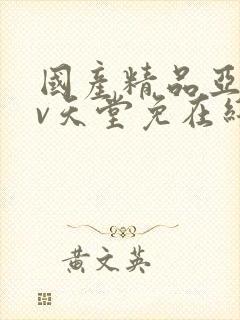 國產精品亞
v天堂免在線
黃文英